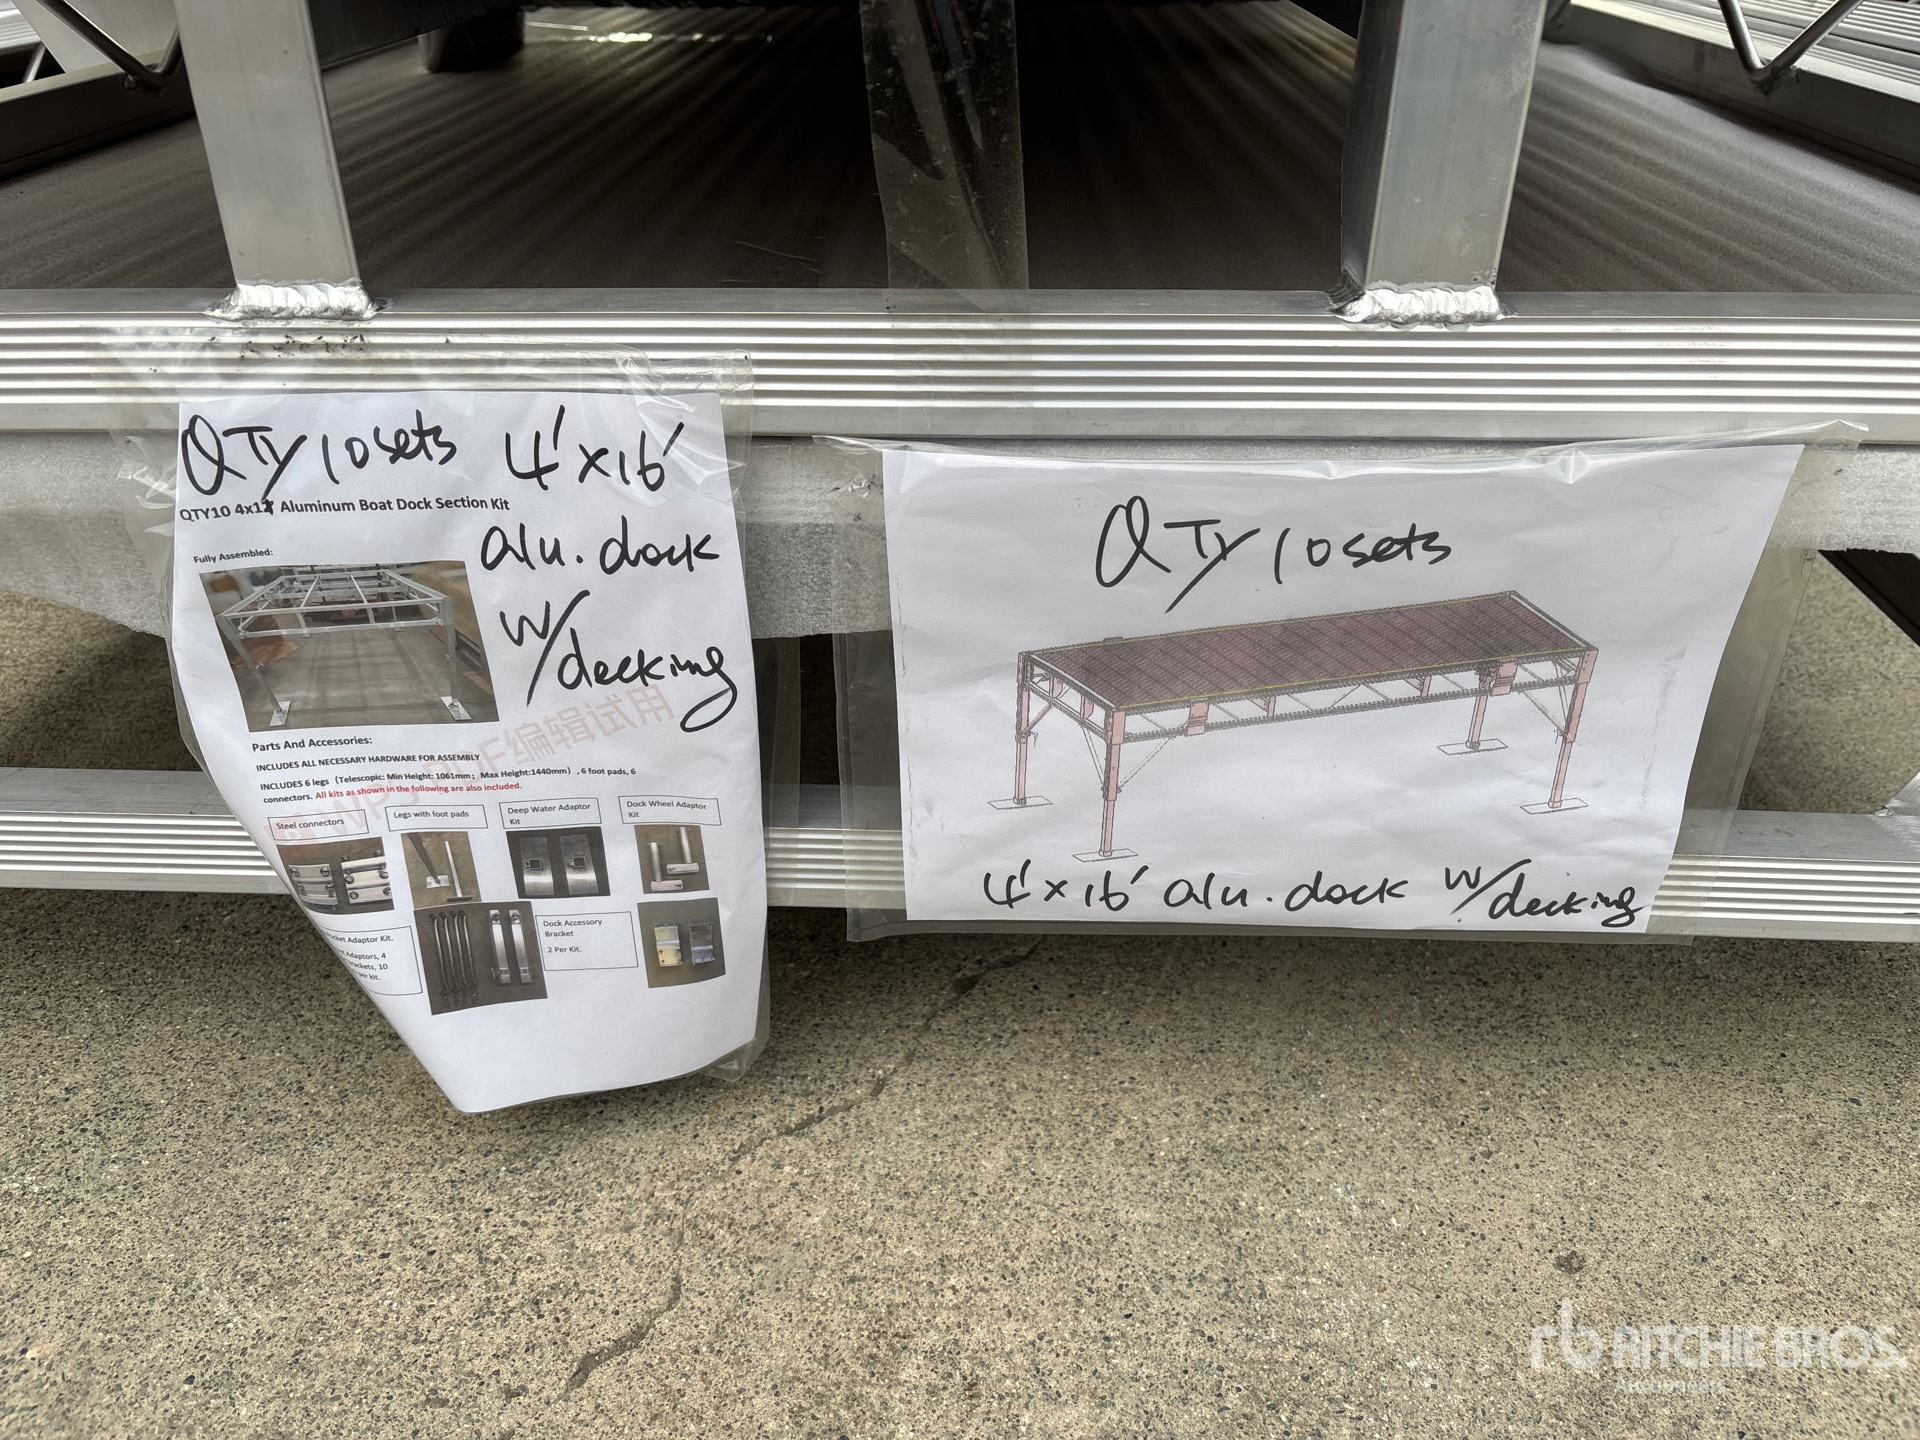 QTY 10 sets 4' x 16'
QTY10 4x12' Aluminum Boat Dock Section Kit
alu. dock
w/decking
Fully Assembled:
WPS PDF编辑试用
Parts And Accessories:
INCLUDES ALL NECESSARY HARDWARE FOR ASSEMBLY
INCLUDES 6 legs (Telescopic: Min Height: 1061mm; Max Height:1440mm) , 6 foot pads, 6
connectors. All kits as shown in the following are also included.
Steel connectors
Legs with foot pads
Deep Water Adaptor
Kit
Dock Wheel Adaptor
Kit
Adaptor Kit.
Adaptors, 4
10
per kit.
Dock Accessory
Bracket
2 Per Kit.
QTY 10 sets
4' x 16' alu. dock w/decking
rb RITCHIE BROS.
Auctioneers